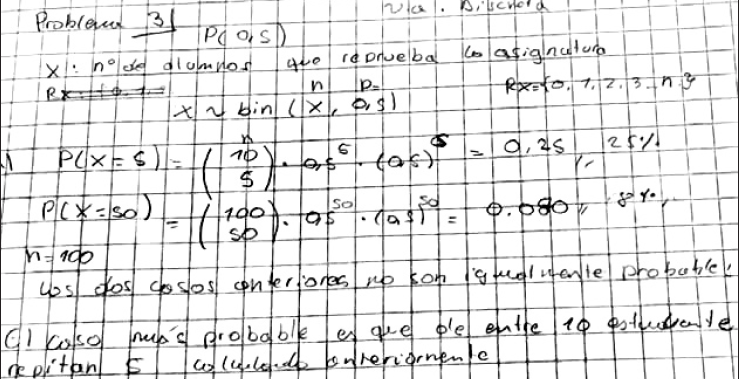 V.a. Discreta
Problema 3| P(0,5)
X: n° de alumnos que reprueba la asignatura
n p= Rx={0, 1, 2, 3...n}
X ~ bin (x, 0,5)
P(X=5) = (10 5) · 0,5^5 · (0,5)^5 = 0,25 // 25%
P(X=50) = (100 50) · 0,5^50 · (0,5)^50 = 0.080 // 8%
n=100
Los dos casos anteriores no son igualmente probable.
El caso más probable es que de entre 10 estudiante
repitan 5 calculado anteriormente